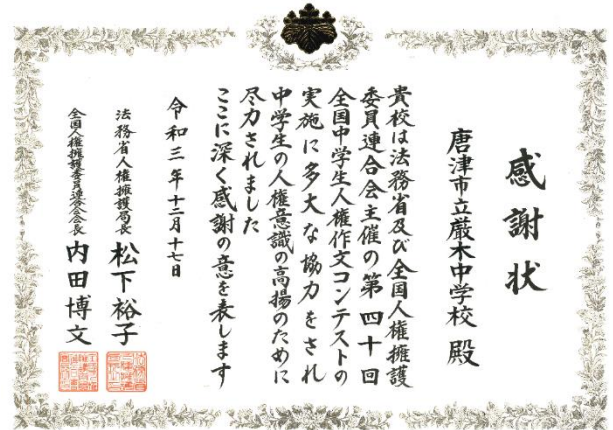 感謝状
唐津市立厳木中学校 殿
貴校は法務省及び全国人権擁護
委員連合会主催の第四十回
全国中学生人権作文コンテストの
実施に多大な協力をされ
中学生の人権意識の高揚のために
尽力されました
ここに深く感謝の意を表します
令和三年十二月十七日
法務省人権擁護局長 松下裕子
全国人権擁護委員連合会会長 内田博文